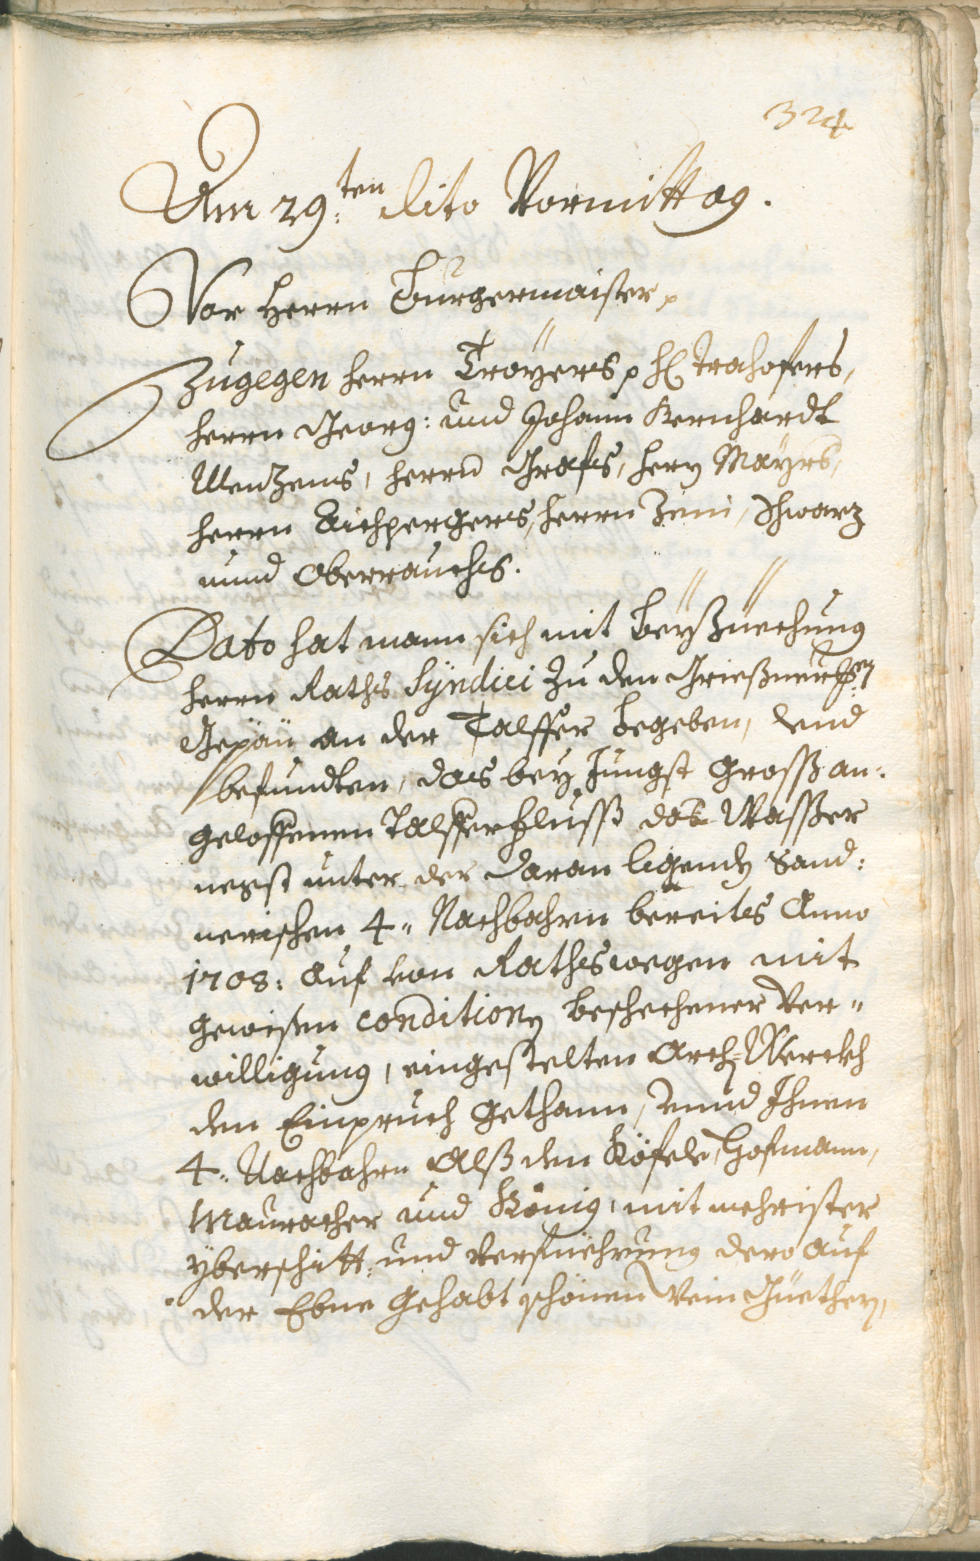 324
Am 29:ten dito Vormittag.
Vor Herrn Burgermaister
Zugegen Herrn Troÿers, H: Trachofers,
Herrn Georg: und Johann Bernhardt
Wenzens, Herrn Grafs, Herrn Maÿrs,
Herrn Aichpergers, Herrn Zeni, Schwarz
unnd Oberrauchs.
Dato hat mann sich mit Beÿziechung
Herrn Raths Sÿndici zu den
Gepäü an der Talffer begeben, vnd
befundten, das beÿ jungst gross an-
geloffenen Talfferfluss das Wasser
negst unter der daran ligenden Sand-
nerischen 4: Nachbahrn bereits Anno
1708: auf von Rathswegen mit
gewisen conditionen beschechener Ver-
willigung, eingestelten Arch-Werckh
den Einpruch gethann, unnd Ihnen
4: Nachbahrn Alss den Köfele, Hofmann,
Mauracher und König, mit mehrister
ÿberschitt- und verfüehrung dero auf
der Ebne gehabt schönen Wein Güethern,